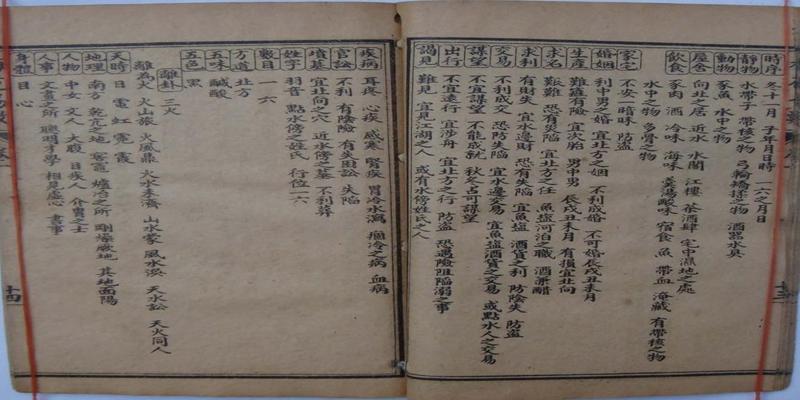 時序 冬十一月 子年月日時 一六之月日
靜物 水帶子 帶核之物 弓輪矯揉之物 酒器水具
動物 豕魚 水中之物
屋舍 向北之居 近水 水閣 江樓 茶酒肆 宅中濕地之處
飲食 豕肉 酒 冷味 海味 羹湯酸味 宿食 魚 帶血 淹藏 有帶核之物
水中之物 多骨之物
家宅 不安 暗昧 防盜
婚姻 利中男之婚 宜北方之姻 不利成婚 不可婚辰戌丑未月
生產 難產有險 宜次胎 男中男 辰戌丑未月 有損宜北向
求名 艱難 恐有災陷 宜北方之任 魚塩河泊之職 酒兼醋
求利 有財失 宜水邊財 恐有失陷 宜魚塩 酒貨之利 防陰失 防盜
交易 不利成交 恐防失陷 宜水邊交易 宜魚塩酒貨之交易 或點水人之交易
謀望 不宜謀望 不能成就 秋冬占可謀望
出行 不宜遠行 宜涉舟 宜北方之行 防盜 恐遇險阻陷溺之事
謁見 難見 宜見江湖之人 或有水傍姓氏之人
疾病 耳疼 心疾 感寒 腎疾 胃冷水瀉 痼冷之病 血病
官訟 不利 有陰險 有失困訟 失陷
墳墓 宜北向之穴 近水傍之墓 不利葬
姓字 羽音 點水傍之姓氏 行位一六
數目 一 六
方道 北方
五味 鹹酸
五色 黑
離卦 三火
離為火 火山旅 火風鼎 火水未濟 山水蒙 風水渙 天水訟 天火同人
天時 日 電 虹 霓 霞
地理 南方 乾亢之地 窰竈 爐冶之所 剛燥厥地 其地面陽
人物 中女 文人 大腹 目疾人 介胄之士
人事 文書之所 聰明才學 相見虛心 書事
身體 目 心
十三
十四